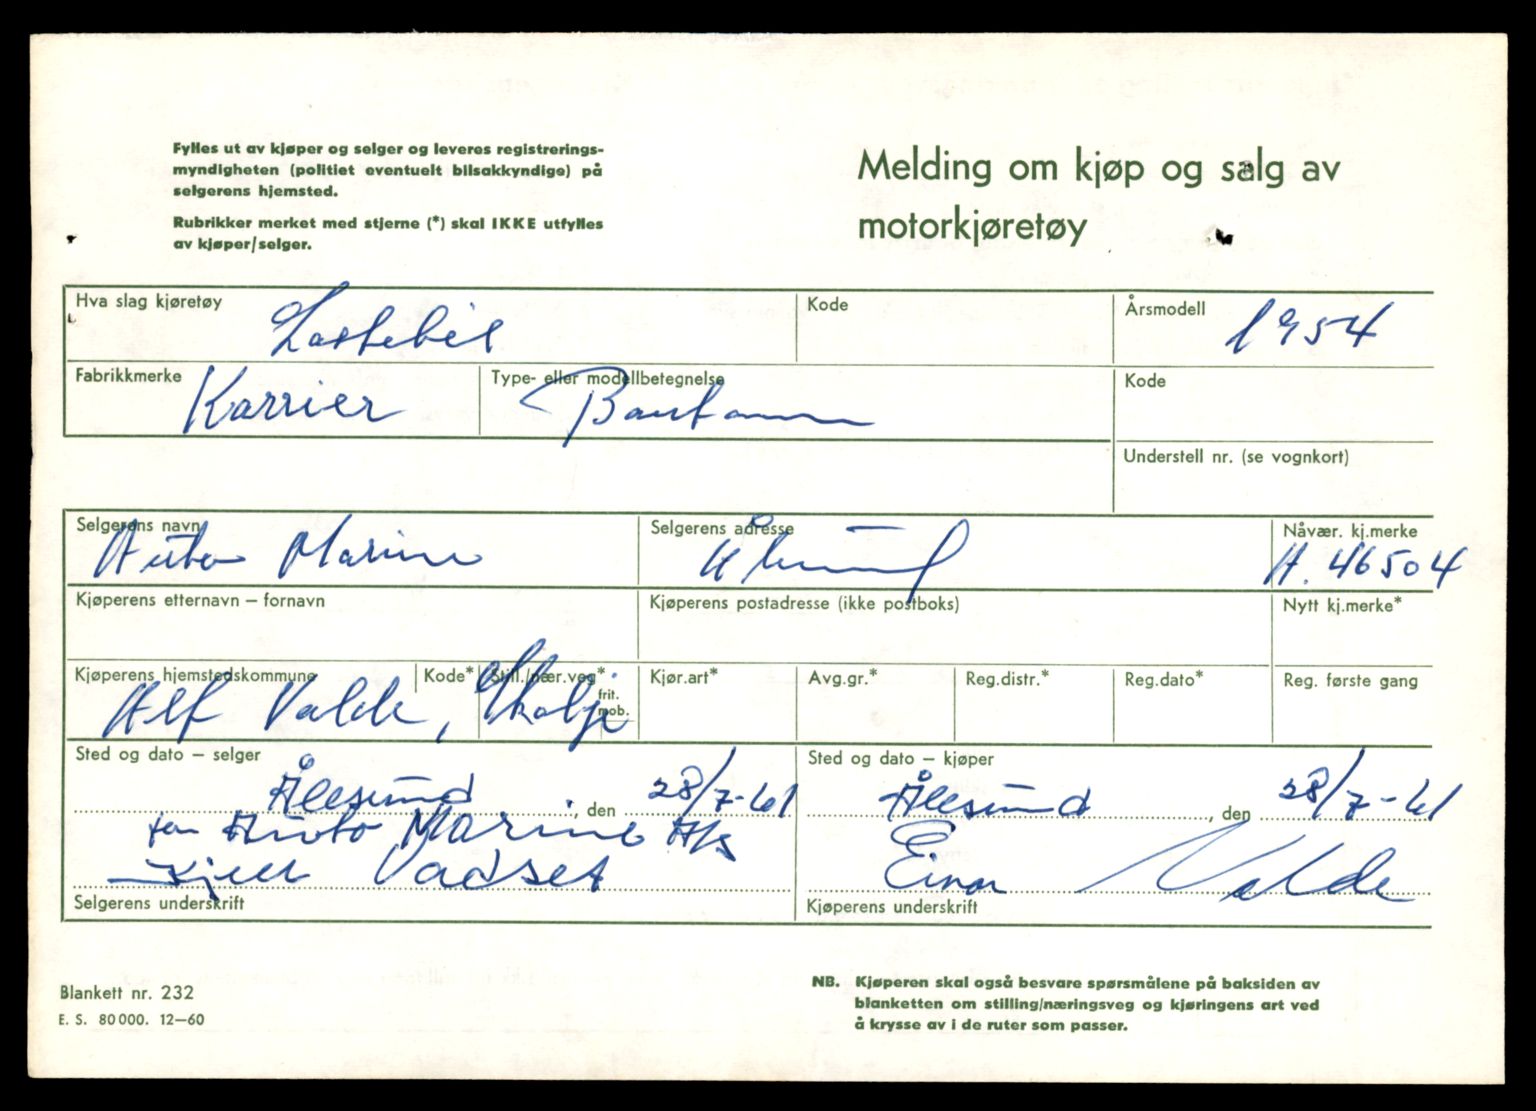 Fylles ut av kjøper og selger og leveres registrerings-
myndigheten (politiet eventuelt bilsakkyndige) på
selgerens hjemsted.
Rubrikker merket med stjerne (*) skal IKKE utfylles
av kjøper/selger.
Melding om kjøp og salg av
motorkjøretøy
Hva slag kjøretøy Lastebil
Kode
Årsmodell 1954
Fabrikkmerke Karrier
Type- eller modellbetegnelse Bantam
Kode
Understell nr. (se vognkort)
Selgerens navn Auto Marine
Selgerens adresse Ålesund
Nåvær. kj.merke H. 46504
Kjøperens etternavn – fornavn
Kjøperens postadresse (ikke postboks)
Nytt kj.merke*
Kjøperens hjemstedskommune Alf Valde, Skodje
Kode*
Still./nær.veg*
frit.
mob.
Kjør.art*
Avg.gr.*
Reg.distr.*
Reg.dato*
Reg. første gang
Sted og dato – selger
Ålesund, den 28/7-61
for Auto Marine A/S
Kjell Vadset
Selgerens underskrift
Sted og dato – kjøper
Ålesund, den 28/7-61
Einar Valde
Kjøperens underskrift
Blankett nr. 232
E. S. 80 000. 12—60
NB. Kjøperen skal også besvare spørsmålene på baksiden av
blanketten om stilling/næringsveg og kjøringens art ved
å krysse av i de ruter som passer.